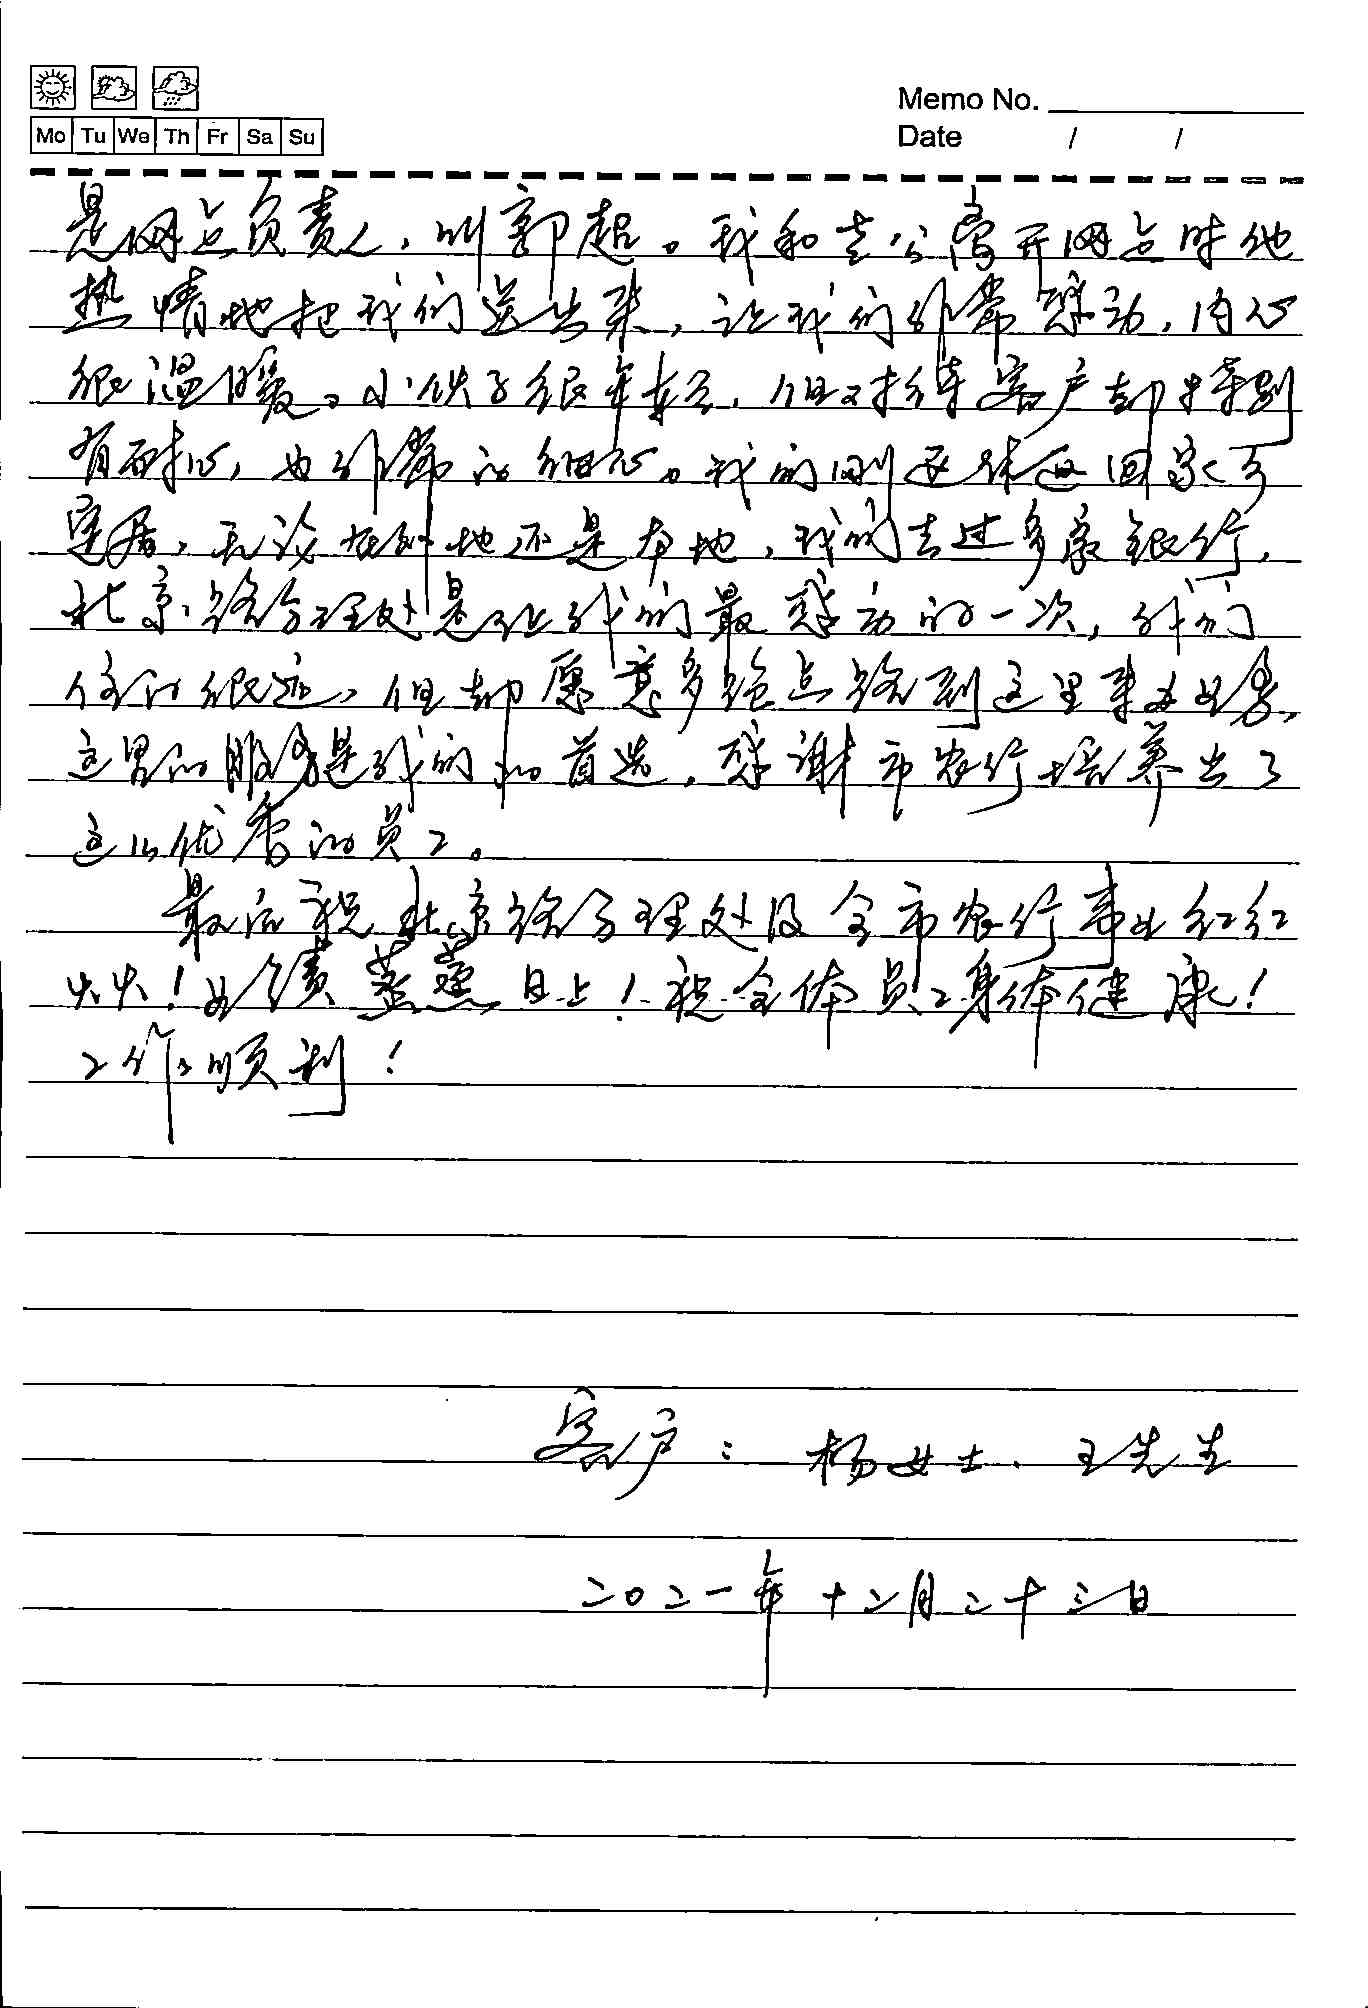 Memo No.
Mo Tu We Th Fr Sa Su
Date / /
是网点负责人，叫郭超。我和老公离开网点时他
热情地把我们送出来，让我们非常感动，内心
很温暖。小伙子很年轻，但对待客户却特别
有耐心，也非常的细心。我们刚退休返回家乡
定居，无论在外地还是本地，我们去过多家银行，
北京路分理处是让我们最感动的一次，我们
住的很远，但却愿意多绕点路到这里来办业务，
这里的服务是我们的首选，感谢市农行培养出了
这么优秀的员工。
最后祝北京路分理处及全市农行事业红红
火火！业绩蒸蒸日上！祝全体员工身体健康！
工作顺利！
客户：杨女士、王先生
二〇二一年十二月二十三日